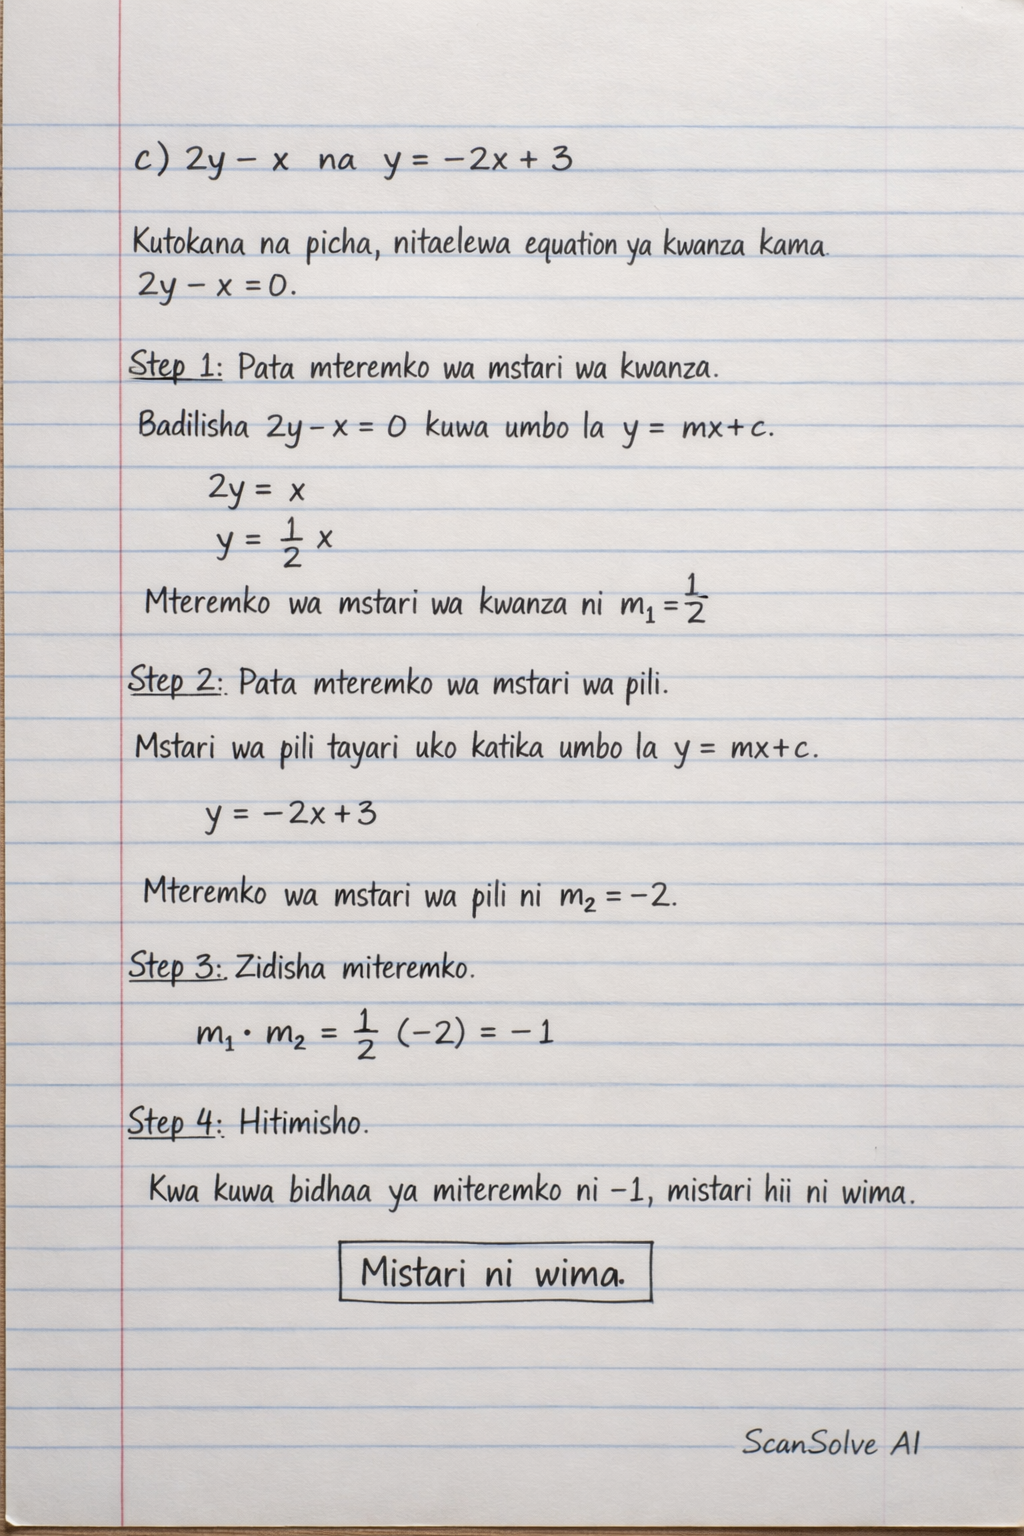 c) 2y − x na y = −2x + 3
Kutokana na picha, nitaelewa equation ya kwanza kama.
2y − x = 0.
Step 1: Pata mteremko wa mstari wa kwanza.
Badilisha 2y − x = 0 kuwa umbo la y = mx + c.
2y = x
y = 1/2 x
Mteremko wa mstari wa kwanza ni m₁ = 1/2
Step 2: Pata mteremko wa mstari wa pili.
Mstari wa pili tayari uko katika umbo la y = mx + c.
y = −2x + 3
Mteremko wa mstari wa pili ni m₂ = −2.
Step 3: Zidisha miteremko.
m₁ · m₂ = 1/2 (−2) = −1
Step 4: Hitimisho.
Kwa kuwa bidhaa ya miteremko ni −1, mistari hii ni wima.
Mistari ni wima.
ScanSolve AI